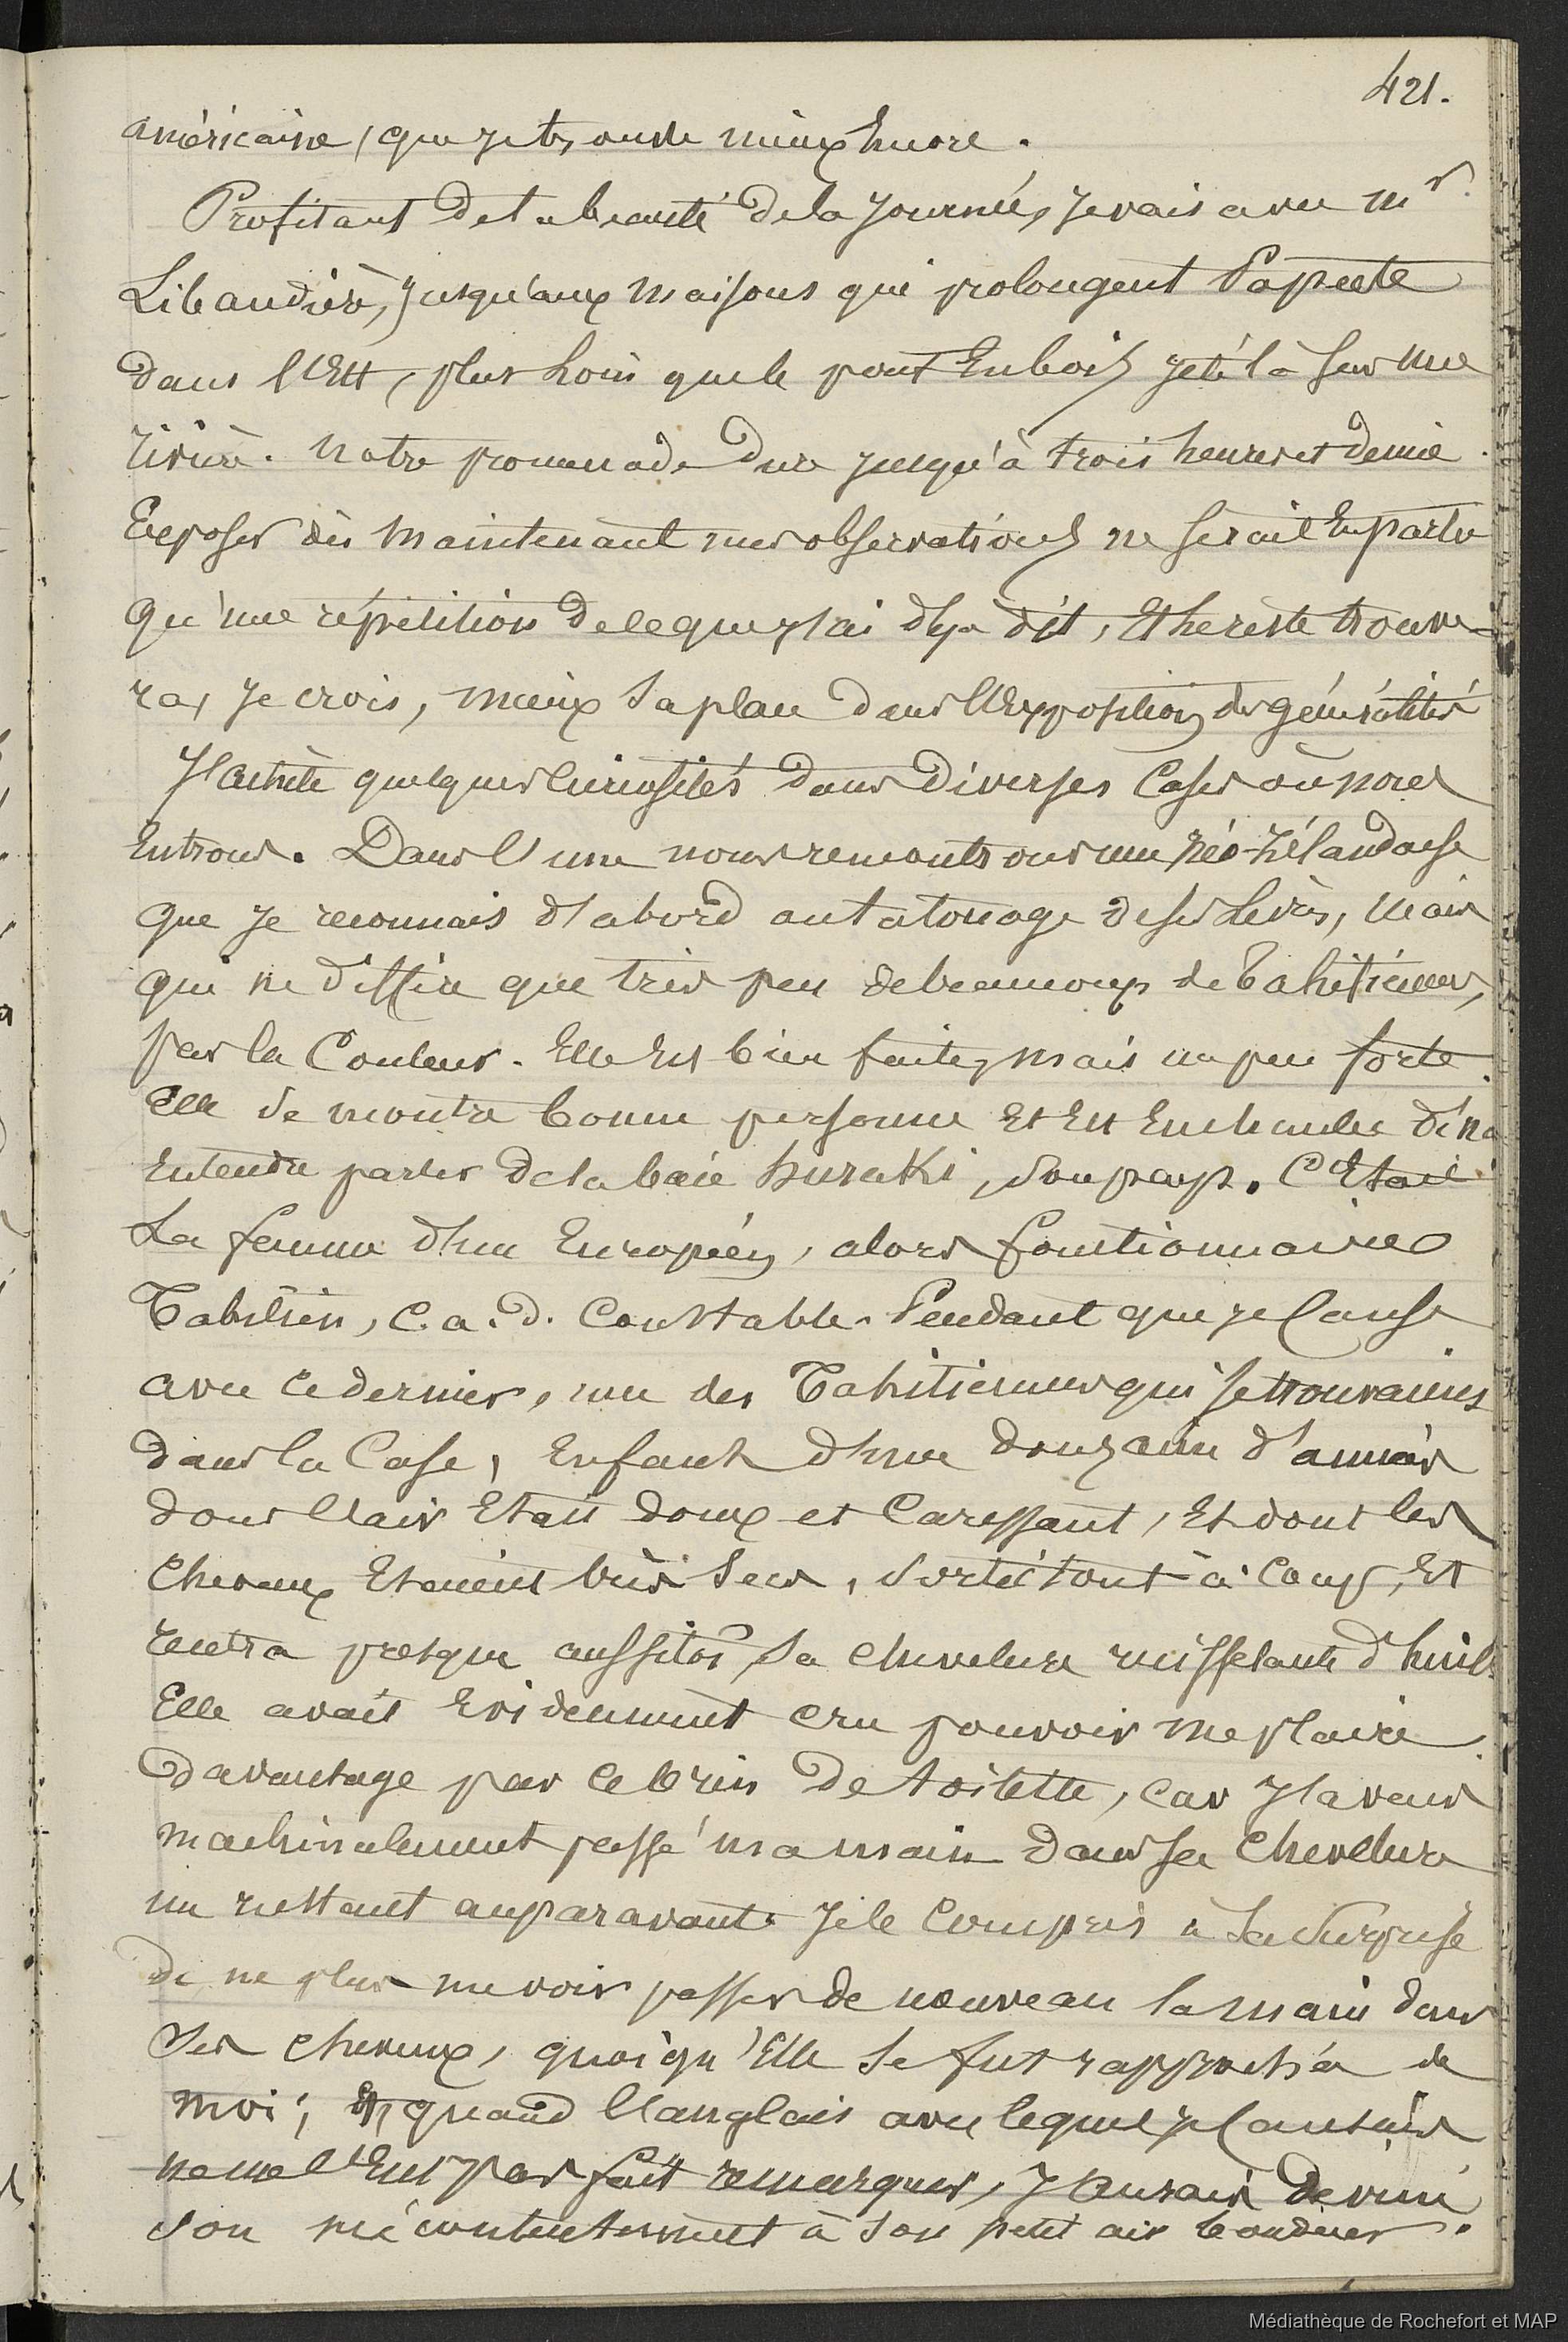 421.
américaine, que je trouve mieux encore.
Profitant de la beauté de la journée, je vais avec Mr
Libaudière, jusqu'aux maisons qui prolongent Papeete
dans l'Est, plus loin que le pont en bois jeté là sur une
rivière. Notre promenade dure jusqu'à trois heures et demie.
Exposer dès maintenant mes observations ne serait en partie
qu'une répétition de ce que j'ai déjà dit, et le reste trouve-
ra, je crois, mieux sa place dans l'exposition des généralités
J'achète quelques curiosités dans diverses cases où nous
entrons. Dans l'une nous rencontrons une néo-zélandaise
que je reconnais d'abord au tatouage de ses lèvres, mais
qui ne diffère que très peu de beaucoup de Tahitiennes,
par la couleur. Elle est bien faite, mais un peu forte.
Elle se montre bonne personne et est enchantée de m'
entendre parler de la baie Huraki, son pays. C'était
la femme d'un Européen, alors fonctionnaire
Tahitien, c.a.d. Constable. Pendant que je cause
avec ce dernier, une des Tahitiennes qui se trouvaient
dans la case, enfant d'une douzaine d'années
dont l'air était doux et caressant, et dont les
cheveux étaient très secs, sortit tout à coup, et
rentra presque aussitôt, sa chevelure ruisselante d'huile
Elle avait évidemment cru pouvoir me plaire
davantage par ce brin de toilette, car j'avais
machinalement passé ma main dans sa chevelure
un instant auparavant. Je le compris à sa surprise
de ne plus me voir passer de nouveau la main dans
ses cheveux, quoiqu'elle se fut rapprochée de
moi; et quand l'anglais avec lequel je causais
ne me l'eut pas fait remarquer, j'aurais deviné
son mécontentement à son petit air boudeur.
Médiathèque de Rochefort et MAP